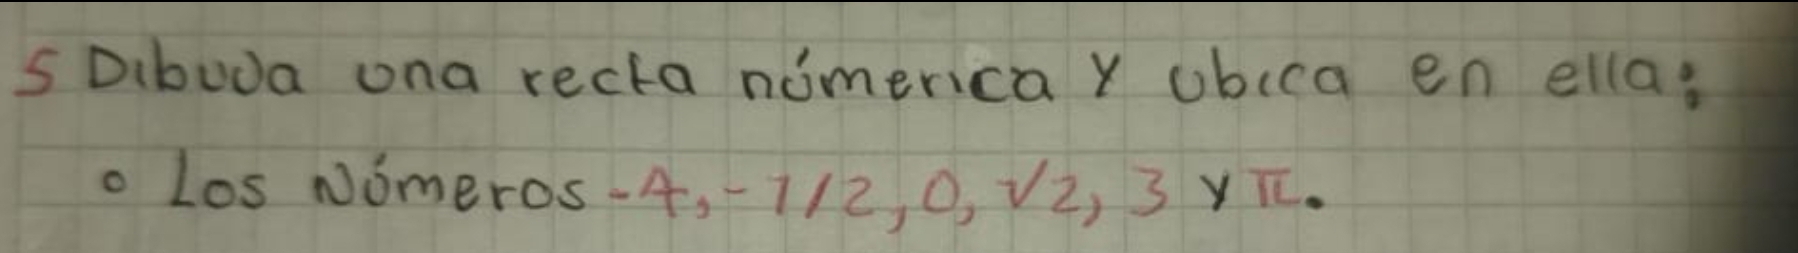 5 Dibuja una recta númerica y ubica en ella:
o Los Números -4, -1/2, 0, √2, 3 y π.